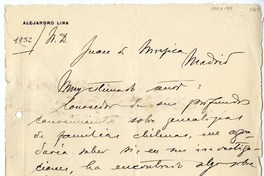 ALEJANDRO LIRA
1932 / N. D.
Juan de Mujica
Madrid
Muy estimado señor:
Conocedor de sus profundos
conocimientos sobre genealogías
de familias chilenas, me agra
daría saber si en sus investiga
ciones, ha encontrado algo sobre